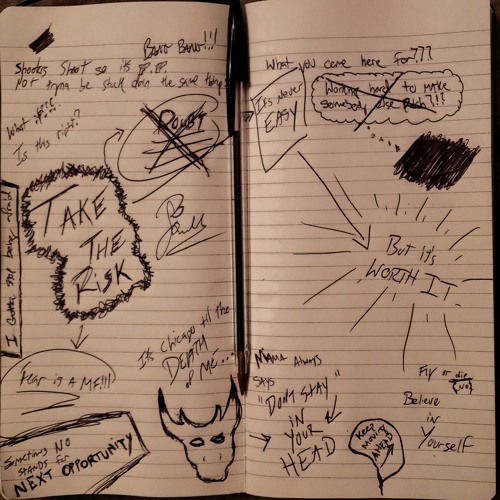 BANG BANG!!!
Shooters Shoot so it's
NOT tryna be stuck doin the same thing
What if...
Is this right?
DOUBT
TAKE
THE
RISK
I Gotta stop being Afraid
It's Chicago til the
DEPTH
of ME...
Fear is A MF!!!
Sometimes NO
STANDS for
NEXT OPPORTUNITY
What you came here for???
It's Never
EASY
Working hard to make
somebody else Rich?!!
But it's
WORTH IT
MAMA Always
SAYS
"DON'T STAY"
IN
YOUR
HEAD
KEEP
MOVING
AHEAD
Fly or die
Believe
in
Yourself